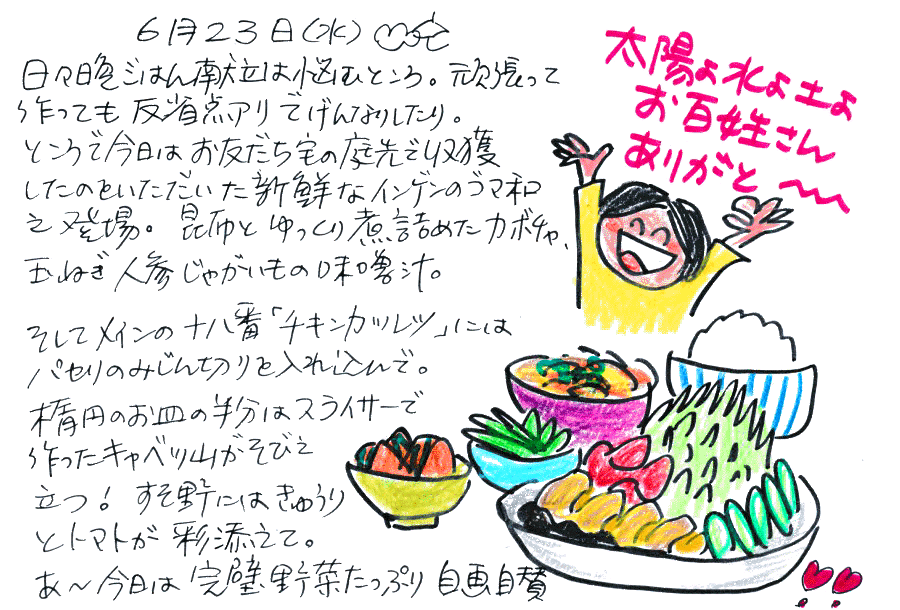 6月23日(水)
日々晩ごはん献立は悩むところ。頑張って
作っても反省点アリでげんなりしたり。
ところで今日はお友だち宅の庭先で収獲
したのをいただいた新鮮なインゲンのゴマ和
え登場。昆布とゆっくり煮詰めたカボチャ、
玉ねぎ人参じゃがいもの味噌汁。
そしてメインの十八番「チキンカツレツ」には
パセリのみじん切りを入れ込んで。
楕円のお皿の半分はスライサーで
作ったキャベツ山がそびえ
立つ!すそ野にはきゅうり
とトマトが彩添えて。
あ〜今日は完璧野菜たっぷり自画自賛
太陽よ水よ土よ
お百姓さん
ありがと〜〜